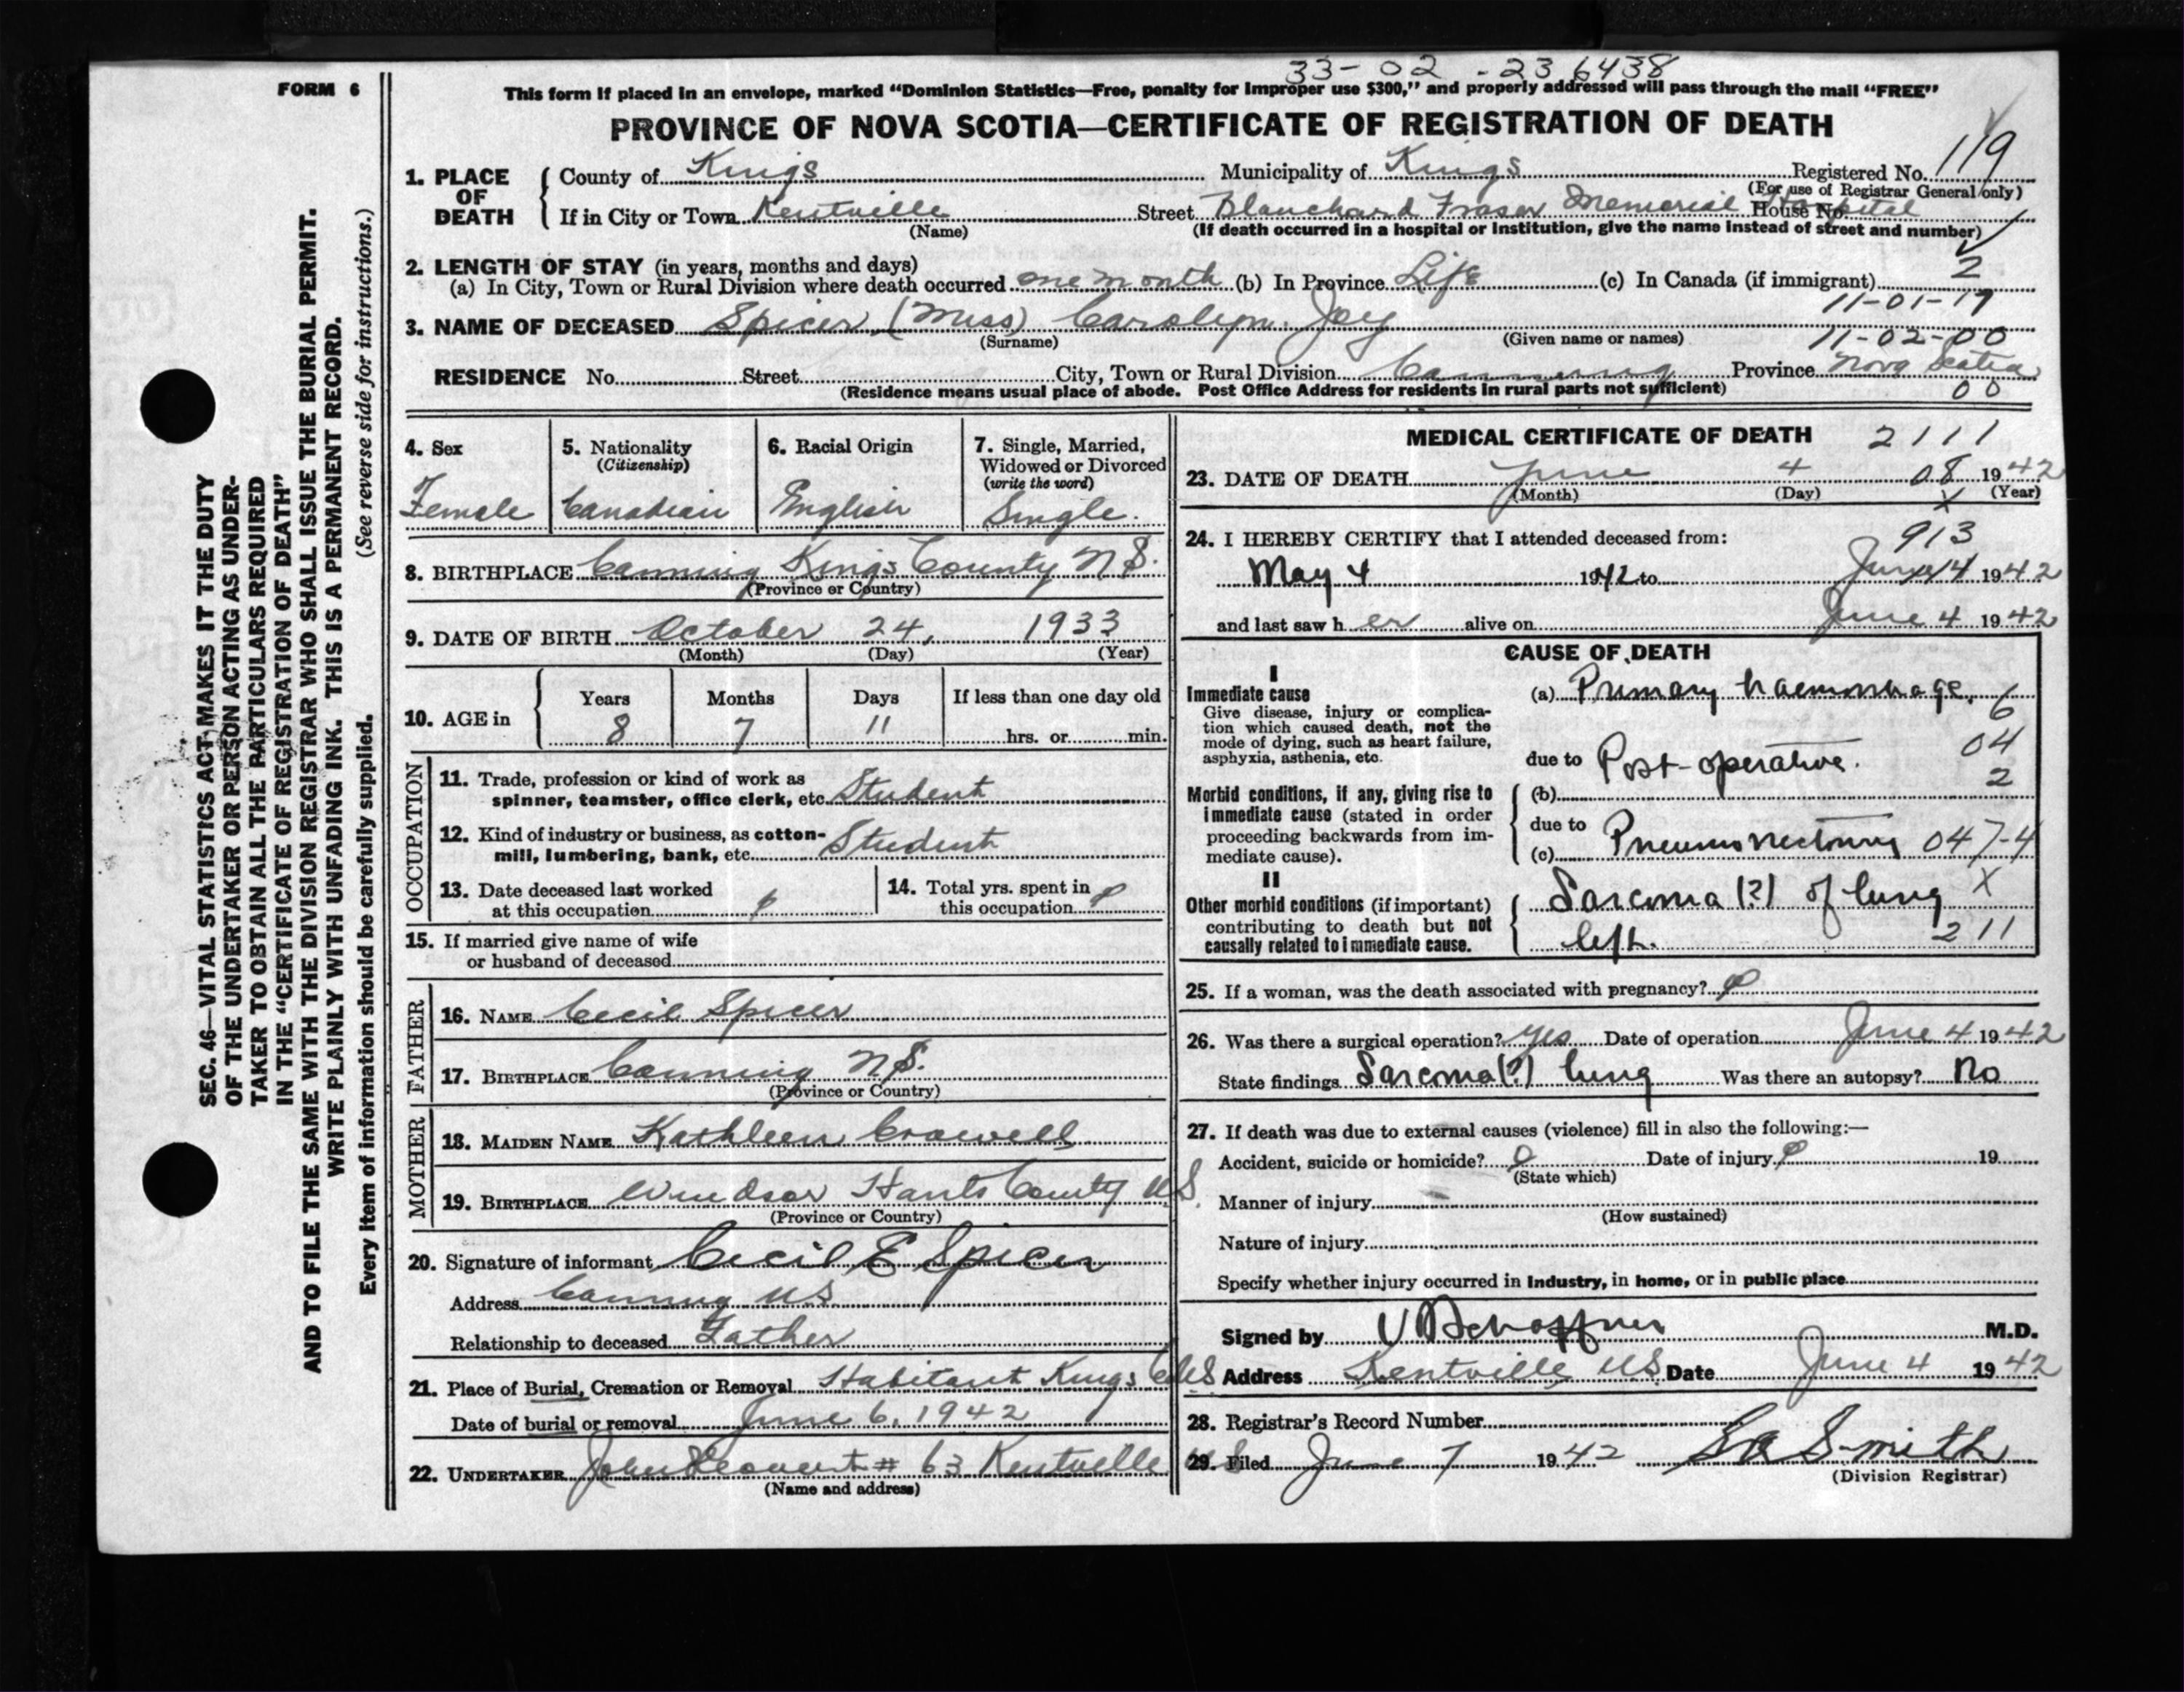 33-02-236438
FORM 6
This form if placed in an envelope, marked "Dominion Statistics—Free, penalty for improper use $300," and properly addressed will pass through the mail "FREE"
PROVINCE OF NOVA SCOTIA—CERTIFICATE OF REGISTRATION OF DEATH
1. PLACE OF DEATH
County of Kings Municipality of Kings Registered No. 119
(For use of Registrar General only)
If in City or Town Kentville Street Blanchard Fraser Memorial Hospital House No.
(Name) (If death occurred in a hospital or institution, give the name instead of street and number)
2. LENGTH OF STAY (in years, months and days)
(a) In City, Town or Rural Division where death occurred one month (b) In Province Life (c) In Canada (if immigrant) 2
11-01-17
3. NAME OF DECEASED Spicer, (Miss) Carolyn Joy
(Surname) (Given name or names) 11-02-00
RESIDENCE No. Street City, Town or Rural Division Canning Province Nova Scotia
(Residence means usual place of abode. Post Office Address for residents in rural parts not sufficient) 00
4. Sex 5. Nationality (Citizenship) 6. Racial Origin 7. Single, Married, Widowed or Divorced (write the word)
Female Canadian English Single.
8. BIRTHPLACE Canning Kings County N.S.
(Province or Country)
9. DATE OF BIRTH October 24, 1933
(Month) (Day) (Year)
10. AGE in Years Months Days If less than one day old
8 7 11 hrs. or min.
OCCUPATION
11. Trade, profession or kind of work as
spinner, teamster, office clerk, etc. Student
12. Kind of industry or business, as cotton-
mill, lumbering, bank, etc. Student
13. Date deceased last worked
at this occupation
14. Total yrs. spent in
this occupation
15. If married give name of wife
or husband of deceased
FATHER
16. NAME Cecil Spicer
17. BIRTHPLACE Canning N.S.
(Province or Country)
MOTHER
18. MAIDEN NAME Kathleen Crowell
19. BIRTHPLACE Windsor Hants County N.S.
(Province or Country)
20. Signature of informant Cecil E Spicer
Address Canning NS
Relationship to deceased Father
21. Place of Burial, Cremation or Removal Habitant Kings Co NS
Date of burial or removal June 6, 1942
22. UNDERTAKER John # 63 Kentville NS
(Name and address)
MEDICAL CERTIFICATE OF DEATH 2111
23. DATE OF DEATH June 4 08 1942
(Month) (Day) X (Year)
24. I HEREBY CERTIFY that I attended deceased from: 913
May 4 1942 to June 4 1942
and last saw her alive on June 4 1942
CAUSE OF DEATH
I
Immediate cause
Give disease, injury or complica-
tion which caused death, not the
mode of dying, such as heart failure,
asphyxia, asthenia, etc.
(a) Primary haemorrhage. 6
04
due to Post-operative.
2
Morbid conditions, if any, giving rise to
immediate cause (stated in order
proceeding backwards from im-
mediate cause).
(b)
due to
(c) Pneumonectomy 047-4
II
Other morbid conditions (if important)
contributing to death but not
causally related to immediate cause.
Sarcoma (?) of lung X
left. 211
25. If a woman, was the death associated with pregnancy?
26. Was there a surgical operation? Yes Date of operation June 4 1942
State findings Sarcoma (?) lung Was there an autopsy? No
27. If death was due to external causes (violence) fill in also the following:—
Accident, suicide or homicide? Date of injury 19
(State which)
Manner of injury
(How sustained)
Nature of injury
Specify whether injury occurred in Industry, in home, or in public place
Signed by V D Schaffner M.D.
Address Kentville NS Date June 4 1942
28. Registrar's Record Number
29. Filed June 7 1942 Smith
(Division Registrar)
SEC. 46—VITAL STATISTICS ACT MAKES IT THE DUTY
OF THE UNDERTAKER OR PERSON ACTING AS UNDER-
TAKER TO OBTAIN ALL THE PARTICULARS REQUIRED
IN THE "CERTIFICATE OF REGISTRATION OF DEATH"
AND TO FILE THE SAME WITH THE DIVISION REGISTRAR WHO SHALL ISSUE THE BURIAL PERMIT.
WRITE PLAINLY WITH UNFADING INK. THIS IS A PERMANENT RECORD.
Every item of information should be carefully supplied. (See reverse side for instructions.)